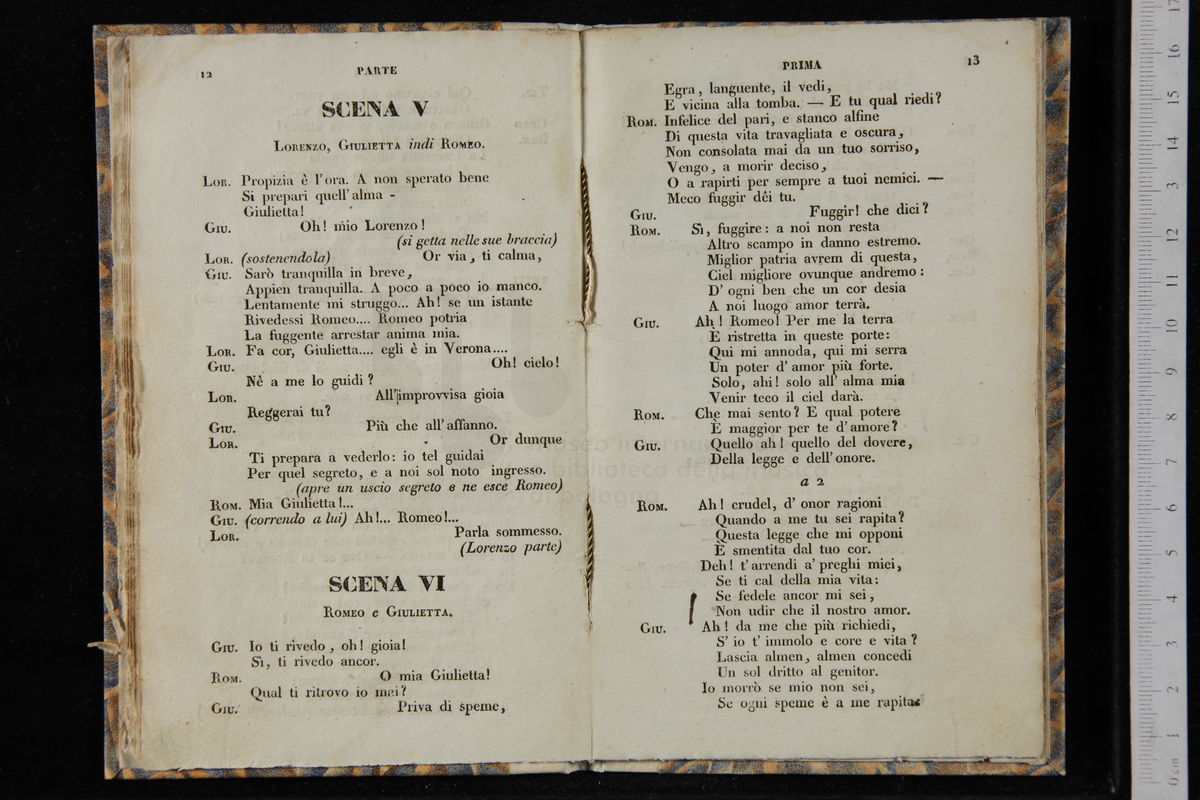 12 PARTE
SCENA V
LORENZO, GIULIETTA indi ROMEO.
LOR. Propizia è l'ora. A non sperato bene
Si prepari quell' alma -
Giulietta!
GIU. Oh! mio Lorenzo!
(si getta nelle sue braccia)
LOR. (sostenendola) Or via, ti calma,
GIU. Sarò tranquilla in breve,
Appien tranquilla. A poco a poco io manco.
Lentamente mi struggo... Ah! se un istante
Rivedessi Romeo.... Romeo potria
La fuggente arrestar anima mia.
LOR. Fa cor, Giulietta.... egli è in Verona....
GIU. Oh! cielo!
Nè a me lo guidi?
LOR. All'improvvisa gioia
Reggerai tu?
GIU. Più che all'affanno.
LOR. Or dunque
Ti prepara a vederlo: io tel guidai
Per quel segreto, e a noi sol noto ingresso.
(apre un uscio segreto e ne esce Romeo)
ROM. Mia Giulietta!...
GIU. (correndo a lui) Ah!... Romeo!...
LOR. Parla sommesso.
(Lorenzo parte)
SCENA VI
ROMEO e GIULIETTA.
GIU. Io ti rivedo, oh! gioia!
Sì, ti rivedo ancor.
ROM. O mia Giulietta!
Qual ti ritrovo io mai?
GIU. Priva di speme,
PRIMA 13
Egra, languente, il vedi,
E vicina alla tomba. — E tu qual riedi?
ROM. Infelice del pari, e stanco alfine
Di questa vita travagliata e oscura,
Non consolata mai da un tuo sorriso,
Vengo, a morir deciso,
O a rapirti per sempre a tuoi nemici. —
Meco fuggir dêi tu.
GIU. Fuggir! che dici?
ROM. Sì, fuggire: a noi non resta
Altro scampo in danno estremo.
Miglior patria avrem di questa,
Ciel migliore ovunque andremo:
D' ogni ben che un cor desia
A noi luogo amor terrà.
GIU. Ah! Romeo! Per me la terra
È ristretta in queste porte:
Qui mi annoda, qui mi serra
Un poter d' amor più forte.
Solo, ahi! solo all' alma mia
Venir teco il ciel darà.
ROM. Che mai sento? E qual potere
È maggior per te d'amore?
GIU. Quello ah! quello del dovere,
Della legge e dell' onore.
a 2
ROM. Ah! crudel, d' onor ragioni
Quando a me tu sei rapita?
Questa legge che mi opponi
È smentita dal tuo cor.
Deh! t'arrendi a' preghi miei,
Se ti cal della mia vita:
Se fedele ancor mi sei,
Non udir che il nostro amor.
GIU. Ah! da me che più richiedi,
S' io t' immolo e core e vita?
Lascia almen, almen concedi
Un sol dritto al genitor.
Io morrò se mio non sei,
Se ogni speme è a me rapita: